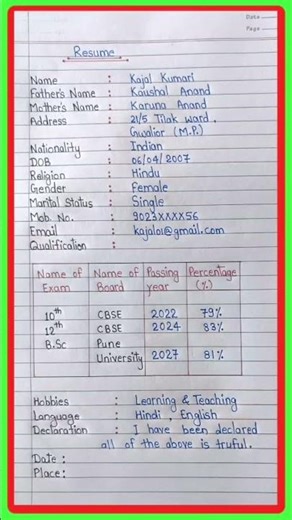 Date
Page
Resume
Name : Kajal Kumari
Father's Name : Kaushal Anand
Mother's Name : Karuna Anand
Address : 21/5 Tilak ward,
Gwalior (M.P.)
Nationality : Indian
DOB : 06/04/2007
Religion : Hindu
Gender : Female
Marital Status : Single
Mob. No. : 9023XXXX56
Email : kajal01@gmail.com
Qualification :
Name of Exam Name of Board Passing year Percentage (%)
10th CBSE 2022 79%
12th CBSE 2024 83%
B.Sc Pune University 2027 81%
Hobbies : Learning & Teaching
Language : Hindi, English
Declaration : I have been declared
all of the above is truful.
Date :
Place :